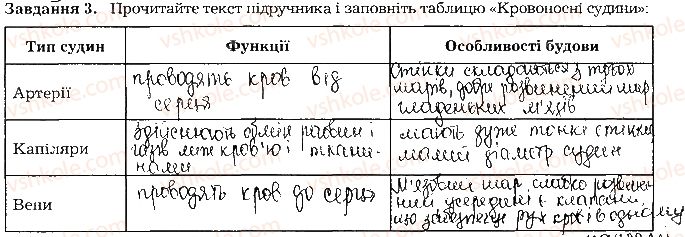 Завдання 3. Прочитайте текст підручника і заповніть таблицю «Кровоносні судини»:
Тип судин Функції Особливості будови
Артерії
проводять кров від
серця
Стінки складаються з трьох
шарів, добре розвинений шар
гладеньких м'язів
Капіляри
здійснюють обмін речовин і
газів між кров'ю і тканинами
нами
мають дуже тонкі стінки
малий діаметр судин
Вени
проводять кров до серця
М'язовий шар слабко розвине-
ний усередині є клапани,
що забезпечує рух крові в одному